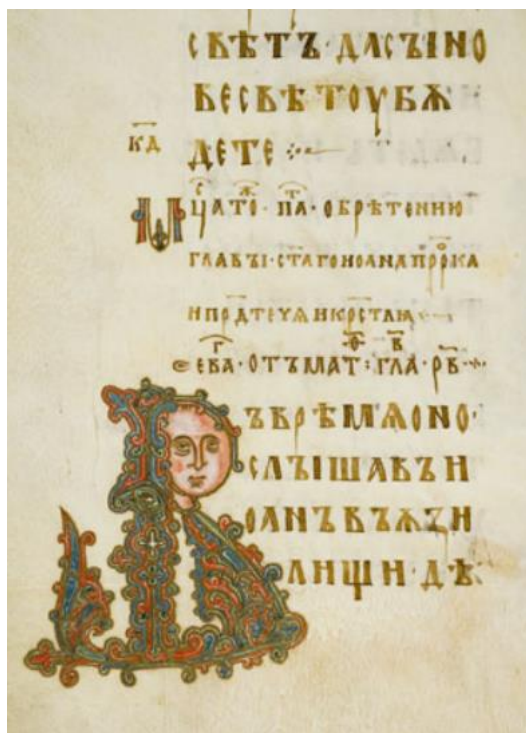 СВѢТЪ·ДАСЪІНО
ВЕСВѢТОУБѪ
ДЕТЕ
К҃Д
МⷭЦАТОⷤ·ПАⷮ·ОБРѢТЕНИЮ
ГЛАВЪІ·СТ҃АГОИОАНАПРⷪ҇КА
ИПРД҃ТЕУѦИКРС҃ТЛѦ
ЕВАⷢ·ОТЪМАТⷴ:ГЛА·РВ҃·
ВЪВРѢМѦОНО·
СЛЪІШАВЪИ
ОАНЪВЪѪꙀИ
ЛИЩИ·ДѢ